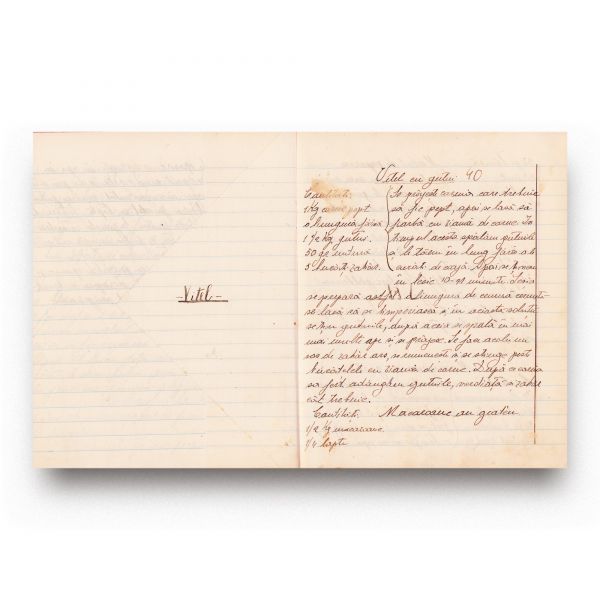 - Vitel -
Vitel cu gutui 40
Cantitati:
1 kg carne piept
o lingura faina
1 1/2 kg gutui.
50 gr untura
5 bucati zahar.
Se prajeste carnea care trebuie
sa fie pept, apoi se lasa să
fiarbă cu zeamă de carne. In
timpul acesta spălam gutuiele
si le taiem in lung fără a le
curăți de coajă. Apoi se tinem
in lesie 10-15 minute. Lesia
se prepară astfel o lingura de cenusă
se lasă să se limpezească si in aceasta solutie
se tin gutuiele, după aceea se spală in mai
mai multe ape si se prajesc. Se face acolo un
sos de zahăr ars, se rumeneste si se stinge peste
bucatelele cu zeamă de carne. După ce carnea
sa fiert adăugăm gutuiele, verdeață si zahăr
cât trebuie.
Cantitati: Macaroane au gratin
1/2 kg macaroane
1/4 lapte